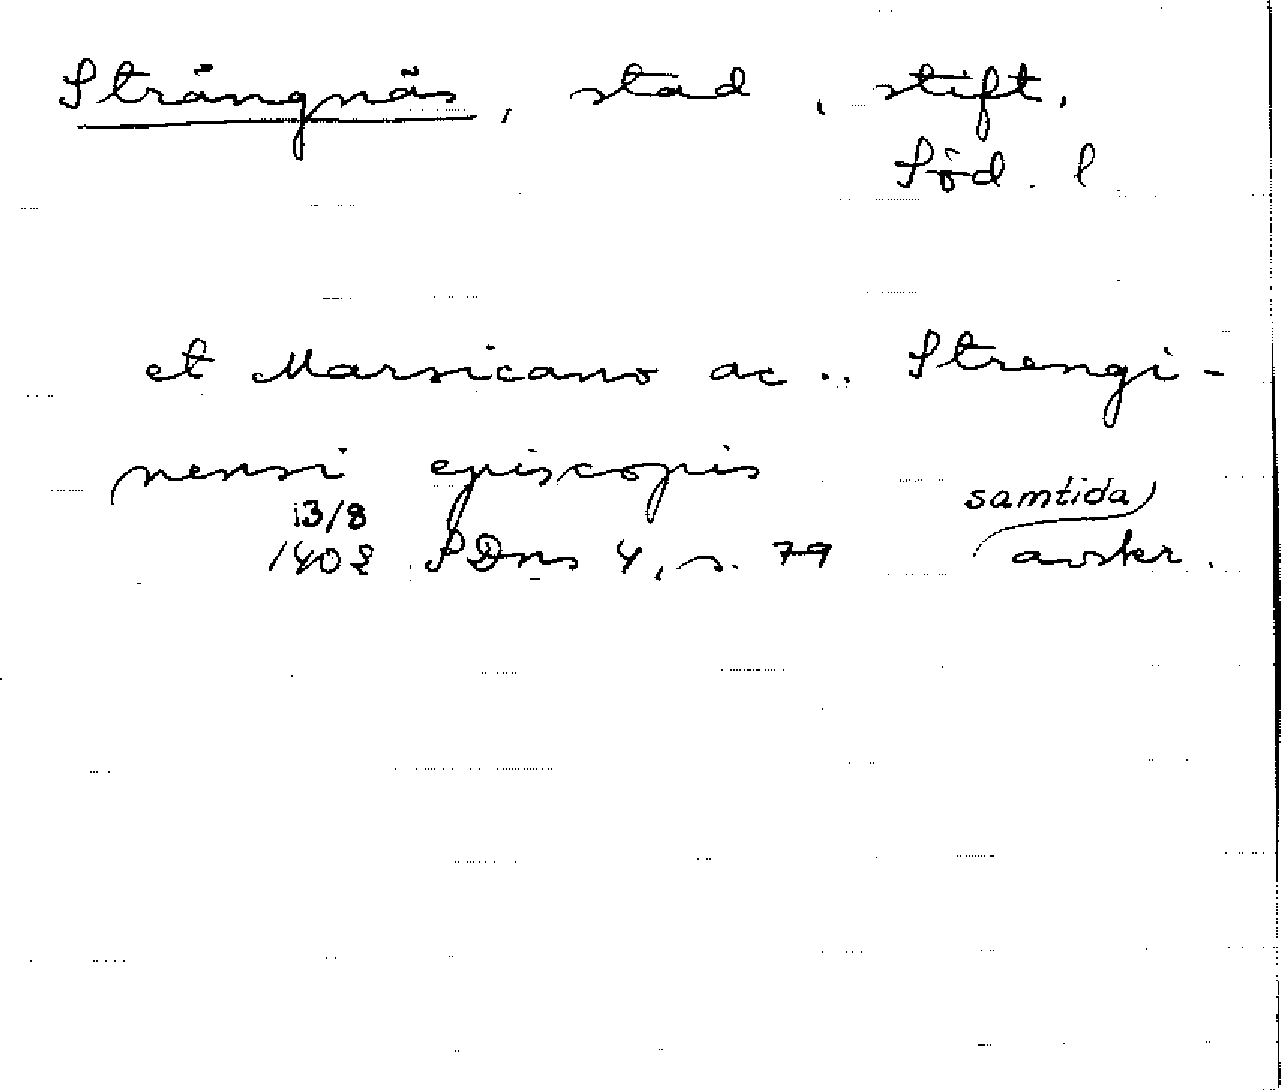 Strängnäs, stad, stift,
Söd. l
et Marsicano ac .. Strengi-
nensi episcopis
13/8 samtida
1402 SDns 4, s. 79 avskr.